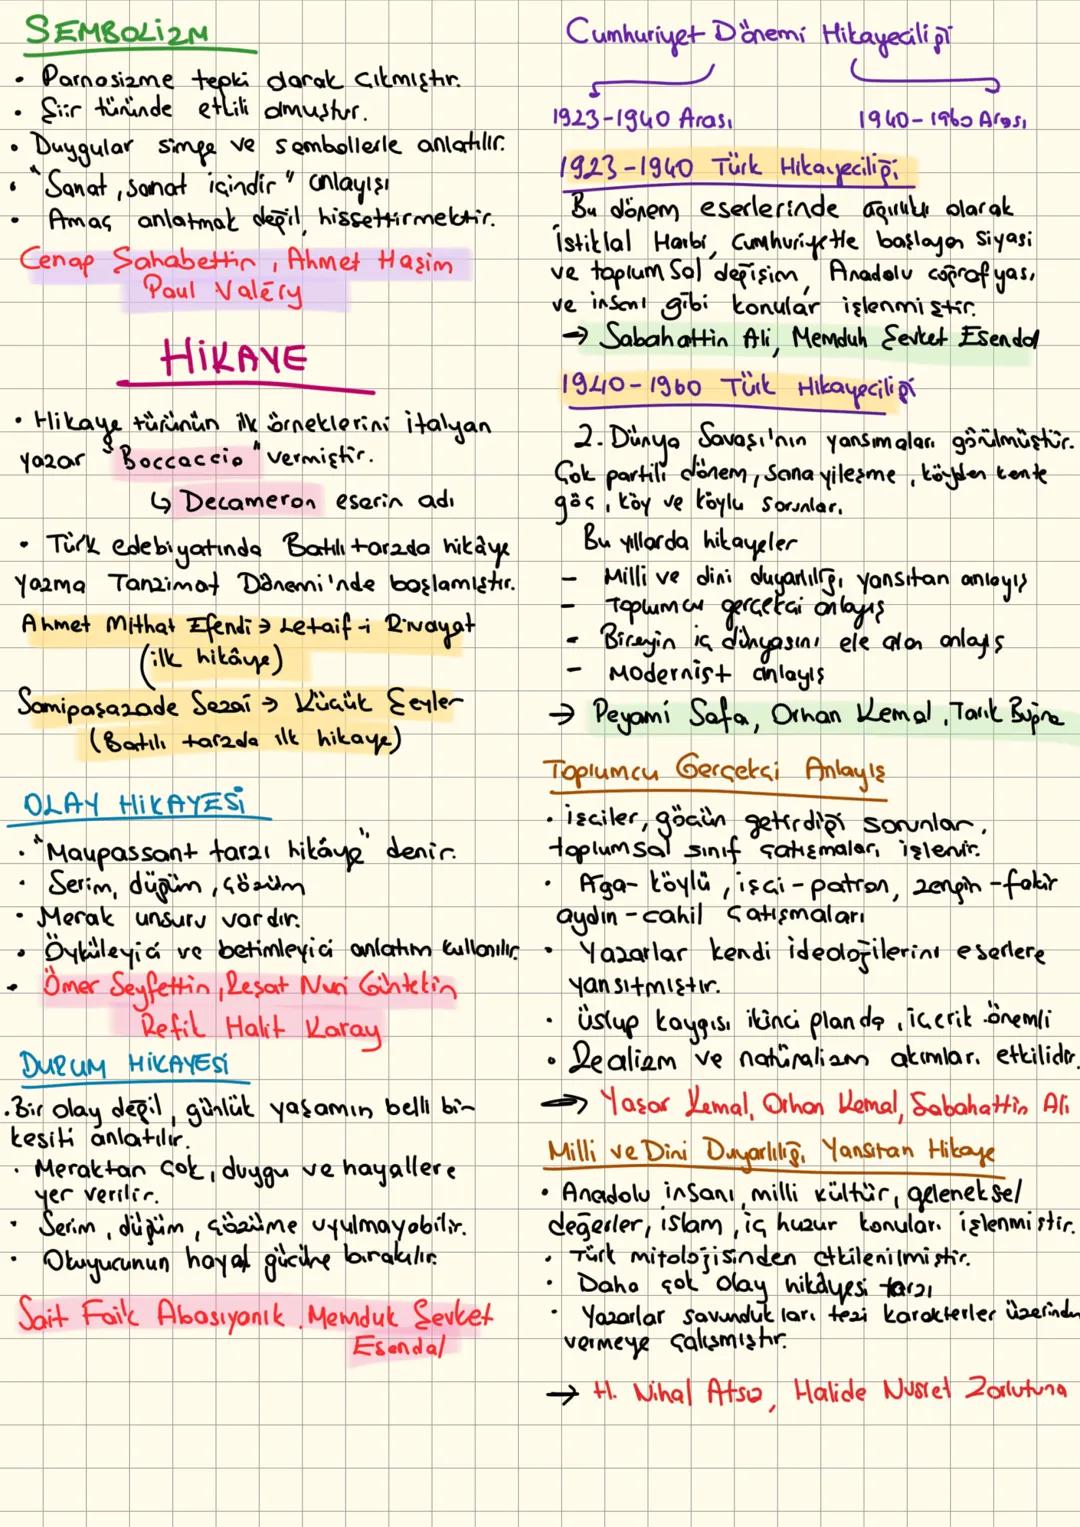 SEMBOLİZM
• Parnasizme tepki olarak çıkmıştır.
• Şiir türünde etkili olmuştur.
• Duygular simge ve sembollerle anlatılır.
• "Sanat, sanat içindir" anlayışı
• Amaç anlatmak değil, hissettirmektir.
Cenap Şahabettin, Ahmet Haşim
Paul Valéry
HİKAYE
• Hikaye türünün ilk örneklerini İtalyan
yazar "Boccaccio" vermiştir.
↳ Decameron eserin adı
• Türk edebiyatında Batılı tarzda hikâye
yazma Tanzimat Dönemi'nde başlamıştır.
Ahmet Mithat Efendi → Letaif-i Rivayat
(ilk hikâye)
Samipaşazade Sezai → Küçük Şeyler
(Batılı tarzda ilk hikaye)
OLAY HİKAYESİ
• "Maupassant tarzı hikâye" denir.
• Serim, düğüm, çözüm
• Merak unsuru vardır.
• Öyküleyici ve betimleyici anlatım kullanılır.
• Ömer Seyfettin, Reşat Nuri Güntekin
Refik Halit Karay
DURUM HİKAYESİ
• Bir olay değil, günlük yaşamın belli bir
kesiti anlatılır.
• Meraktan çok, duygu ve hayallere
yer verilir.
• Serim, düğüm, çözüme uyulmayabilir.
• Okuyucunun hayal gücüne bırakılır.
Sait Faik Abasıyanık, Memduk Şevket
Esendal
Cumhuriyet Dönemi Hikayeciliği
1923-1940 Arası
1940-1960 Arası
1923-1940 Türk Hikayeciliği
Bu dönem eserlerinde ağırlıklı olarak
İstiklal Harbi, Cumhuriyetle başlayan siyasi
ve toplumsal değişim, Anadolu coğrafyası,
ve insanı gibi konular işlenmiştir.
→ Sabahattin Ali, Memduh Şevket Esendal
1940-1960 Türk Hikayeciliği
2. Dünya Savaşı'nın yansımaları görülmüştür.
Çok partili dönem, sanayileşme, köyden kente
göç, köy ve köylu sorunları.
Bu yıllarda hikayeler
- Milli ve dini duyarlılığı yansıtan anlayış
- Toplumcu gerçekçi anlayış
- Bireyin iç dünyasını ele alan anlayış
- Modernist anlayış
→ Peyami Safa, Orhan Kemal, Tarık Buğra
Toplumcu Gerçekçi Anlayış
• İşçiler, göçün getirdiği sorunlar,
toplumsal sınıf çatışmaları işlenir.
• Ağa-köylü, işçi-patron, zengin-fakir
aydın-cahil çatışmaları
• Yazarlar kendi ideolojilerini eserlere
yansıtmıştır.
• Üslup kaygısı ikinci planda, içerik önemli
• Realizm ve natüralizm akımları etkilidir.
→ Yaşar Kemal, Orhan Kemal, Sabahattin Ali
Milli ve Dini Duyarlılığı Yansıtan Hikaye
• Anadolu insanı, milli kültür, geleneksel
değerler, islam, iç huzur konuları işlenmiştir.
• Türk mitolojisinden etkilenilmiştir.
• Daha çok olay hikâyesi tarzı
• Yazarlar savundukları tezi karakterler üzerinden
vermeye çalışmıştır.
→ H. Nihal Atsız, Halide Nusret Zorlutuna